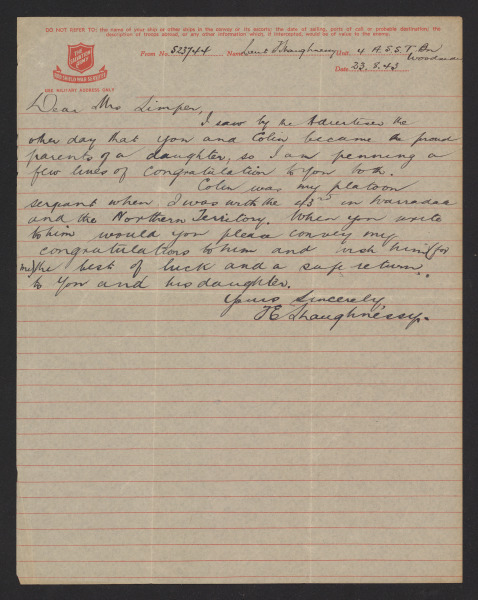 DO NOT REFER TO: the name of your ship or other ships in the convoy or its escorts; the date of sailing, ports of call, or probable destination; the
description of troops aboard, or any other information which, if intercepted, would be of value to the enemy.
THE SALVATION ARMY
RED SHIELD WAR SERVICES
USE MILITARY ADDRESS ONLY
From No. 523744 Name Lieut Shaughnessy Unit 4 A.S.S.T. Bn
Woodside
Date 23.8.43
Dear Mrs Limper,
I saw by the Advertiser the
other day that you and Colin became the proud
parents of a daughter, so I am penning a
few lines of congratulation to you both.
Colin was my platoon
sergeant when I was with the 43rd in Warradale
and the Northern Territory. When you write
to him would you please convey my
congratulations to him and wish him (for
me) the best of luck and a safe return
to you and his daughter.
Yours Sincerely
Shaughnessy.